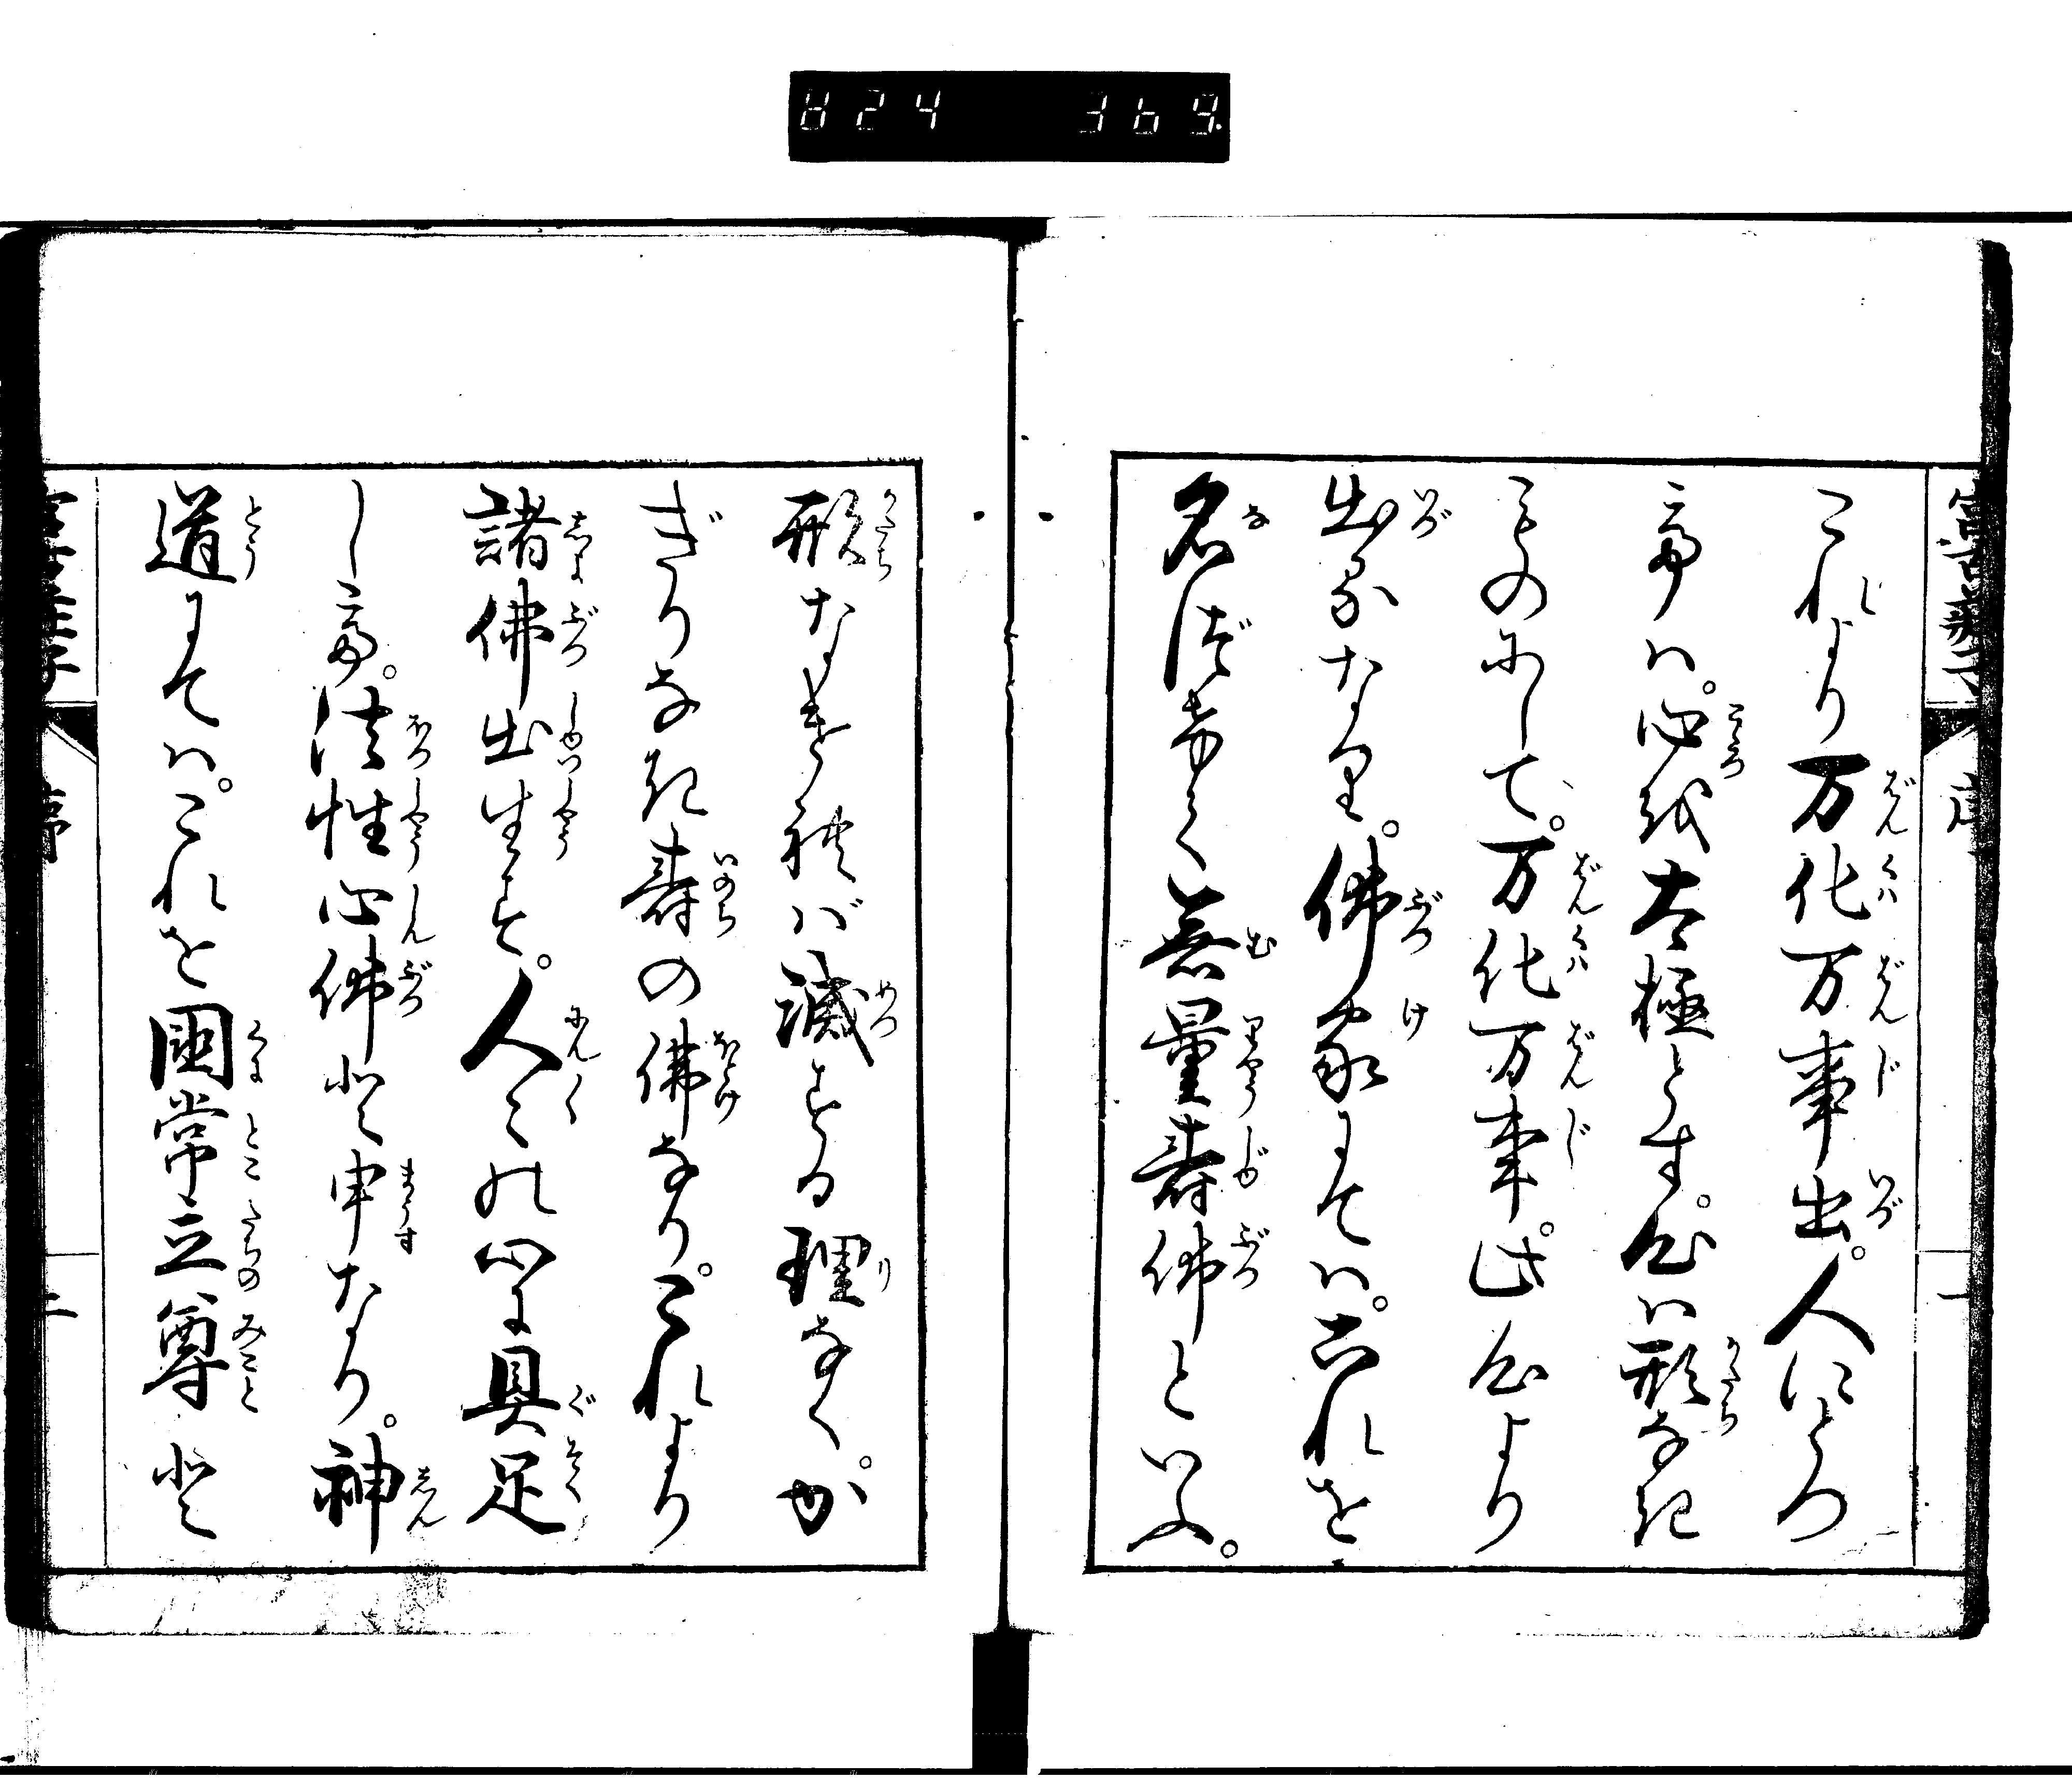 824 369.
これより万化万事出。人にとつ
てハ。心を太極とす。心ハ形なき
ものにして。万化万事。此心より
出るなり。佛家にてハ。これを
名づけて無量壽佛といふ。
形なければ滅する理なく。か
ぎりなき壽の佛なり。これより
諸佛出生す。人々の心に具足
して。法性心佛と申なり。神
道にてハ。これを國常立尊と
序
二